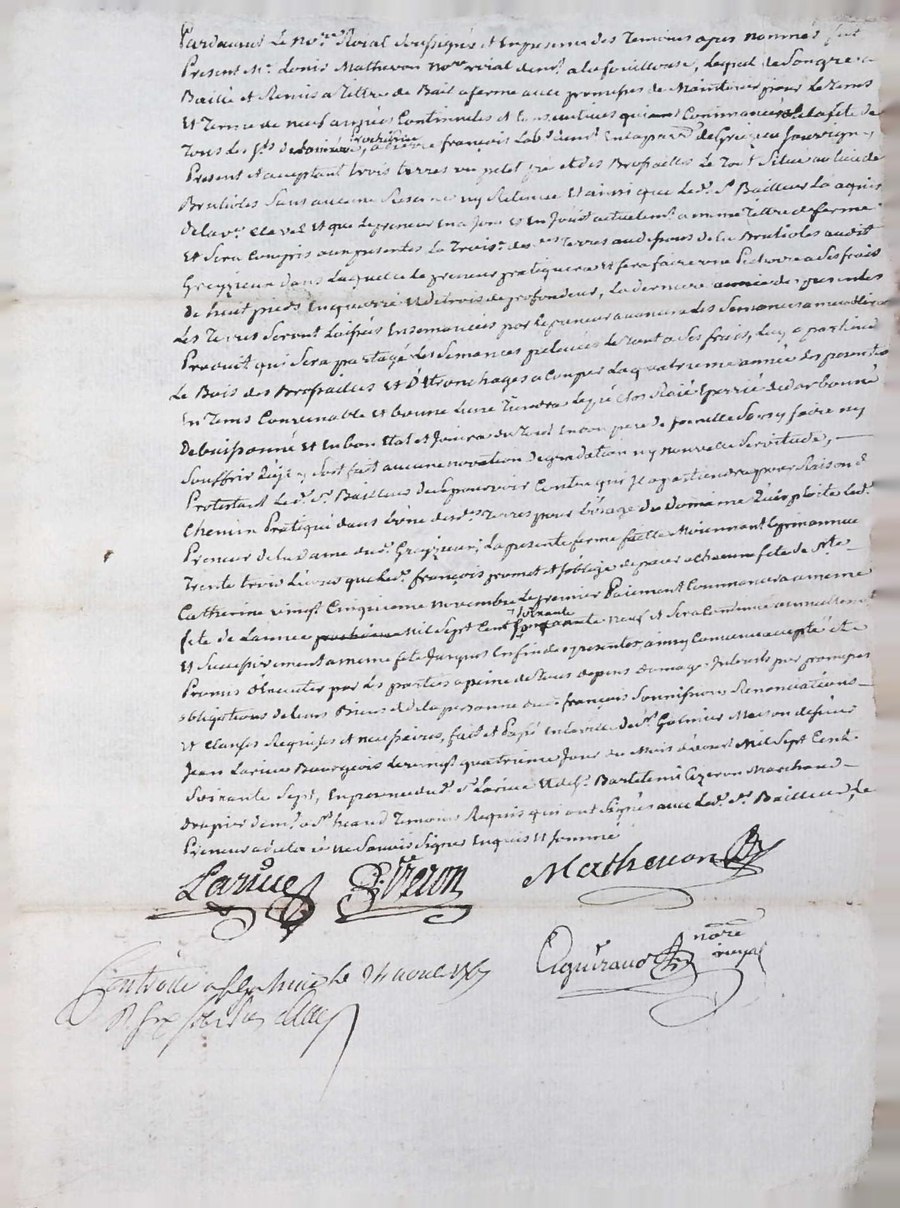 Pardevant Le no.re Roial Soussigné et En presence des Temoins apres nommés fut
Present M.e Louis Mathevon no.re roial dem.t a la fouillouse, Lequel de Son gre a
Baillé et Remis a Tittre de Bail a ferme avec promesses de Maintenir pour Le tems
Et Terme de neuf années Continuelles et Consecutives qui ont Commancé a la fête de
Tous Les S.ts dernier prochaine, a pierre françois Lab.r dem.t En la parr.e de Greizieu Souvigne,
Present et acceptant trois terres un petit pré et des Brossailles Le Tout Situé au lieu de
Brutioles Sans aucune Reserve ny Retenue Et ainsi que Led. S.r Bailleur La aquis
de la v.e Clavel Et que Le preneur En a Joui et En Jouit actuelem.t a meme Tittre de ferme
Et Sera Compris aux presentes La Trois.e des Terres au dessous de la Brutioles audit
Greyzieu dans Laquelle Le preneur pratiquera Et fera faire une Pechoire a Ses frais
de huit pieds En quarré et de trois de profondeur, La derniere année des presentes
Les Terres Seront Laissées Ensemancées par Le preneur avancera Les Semances
Produit qui Sera partagé Les Semances prelevées Le Tout a Ses frais,
Le Bois des Brossailles Et D'Etronchages a Couper La quatrieme année des presentes
En Tems Convenable et bonne Lune Tiendra Le pré Clos Raié Epierré
Debuissonné Et En bon Etat et Jouira du Tout En bon pere de famille Sans y faire ny
Souffrir qu'il y Soit fait aucune novation degradation ny nouvelle Servitude, —
Protestant Led. S.r Bailleur de Se pourvoir Contre qui Il apartiendra pour Raison du
Chemin Pratiqué dans L'une des d. Terres pour L'usage du Domaine qu'exploite Led.
Preneur de la Dame du d. Greyzieu; La presente ferme faitte Moiennant Le prix annuel
Trente trois Livres que Led. françois promet et S'oblige de paier a chacune fete de S.te
Catherine vingt Cinquieme novembre Le premier Paiement Commancera a meme
fete de L'année Mil Sept Cent Soixante neuf et Sera Continué annuellem.t
Et Successivement a meme fete Jusques Enfin des presentes, ainsy Convenu accepté Et
Promis d'Executer par Les parties a peine de Tous depens domages Interets par promesses
obligations de leurs Biens et de la personne dud. françois Soumissions Renonciations
Et Clauses Requises et necessaires, fait et Passé En la ville de S.t Galmier Maison de Sieur
Jean Larive Bourgeois Le vingt quatrieme Jour du Mois d'aout Mil Sept Cent
Soixante Sept, En presence du d. S.r Larive Et de S.r Bartelemi Ozeron Marchand
drapier dem.t a S.t heand Temoins Requis qui ont Signés avec Led. S.r Bailleur, Le
Preneur a déclaré ne Savoir Signer Enquis Et Sommé
Larive Ozeron Mathevon
Aguiraud no.re royal
Controlé a le 24 aout 1767